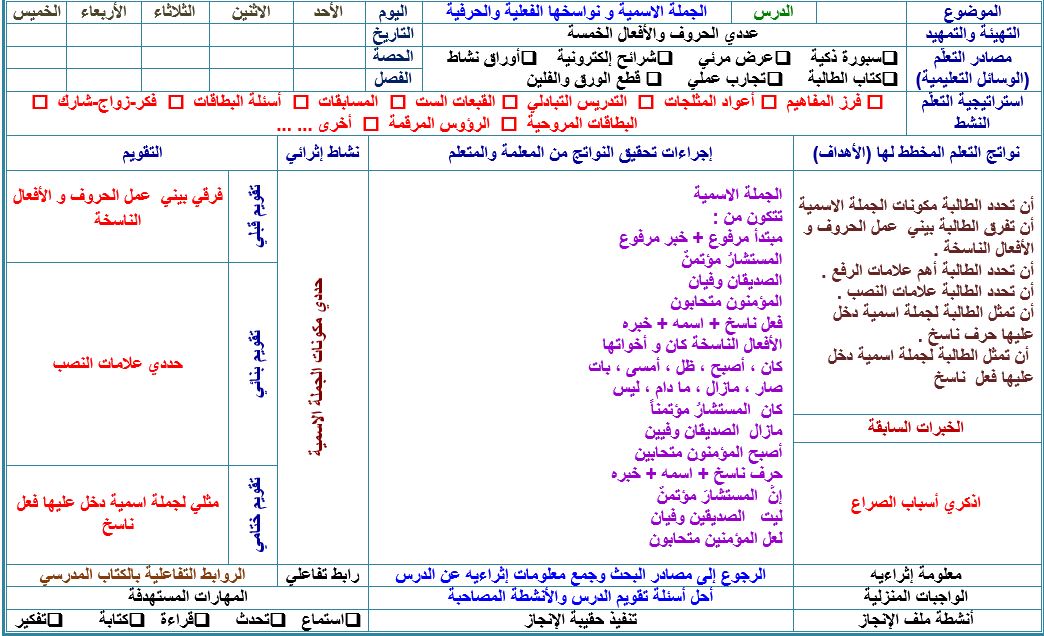 الموضوع
الدرس
الجملة الاسمية و نواسخها الفعلية والحرفية
اليوم
الأحد
الاثنين
الثلاثاء
الأربعاء
الخميس
التهيئة والتمهيد
عددي الحروف والأفعال الخمسة
التاريخ
مصادر التعلّم
(الوسائل التعليمية)
❑سبورة ذكية ❑عرض مرئي ❑شرائح إلكترونية ❑أوراق نشاط
❑كتاب الطالبة ❑تجارب عملي ❑ قطع الورق والفلين
الحصة
الفصل
استراتيجية التعلّم
النشط
☐ فرز المفاهيم ☐ أعواد المثلجات ☐ التدريس التبادلي ☐ القبعات الست ☐ المسابقات ☐ أسئلة البطاقات ☐ فكر-زواج-شارك ☐
البطاقات المروحية ☐ الرؤوس المرقمة ☐ أخرى ... ...
نواتج التعلم المخطط لها (الأهداف)
إجراءات تحقيق النواتج من المعلمة والمتعلم
نشاط إثرائي
التقويم
أن تحدد الطالبة مكونات الجملة الاسمية
أن تفرق الطالبة بيني عمل الحروف و
الأفعال الناسخة .
أن تحدد الطالبة أهم علامات الرفع .
أن تحدد الطالبة علامات النصب .
أن تمثل الطالبة لجملة اسمية دخل
عليها حرف ناسخ .
أن تمثل الطالبة لجملة اسمية دخل
عليها فعل ناسخ
الخبرات السابقة
اذكري أسباب الصراع
الجملة الاسمية
تتكون من :
مبتدأ مرفوع + خبر مرفوع
المستشارُ مؤتمنٌ
الصديقان وفيان
المؤمنون متحابون
فعل ناسخ + اسمه + خبره
الأفعال الناسخة كان و أخواتها
كان ، أصبح ، ظل ، أمسى ، بات
صار ، مازال ، ما دام ، ليس
كان المستشارُ مؤتمناً
مازال الصديقان وفيين
أصبح المؤمنون متحابين
حرف ناسخ + اسمه + خبره
إنّ المستشارَ مؤتمنٌ
ليت الصديقين وفيان
لعل المؤمنين متحابون
حددي مكونات الجملة الاسمية
تقويم قبلي
فرقي بيني عمل الحروف و الأفعال
الناسخة
تقويم بنائي
حددي علامات النصب
تقويم ختامي
مثلي لجملة اسمية دخل عليها فعل
ناسخ
معلومة إثراءيه
الرجوع إلى مصادر البحث وجمع معلومات إثراءيه عن الدرس
رابط تفاعلي
الروابط التفاعلية بالكتاب المدرسي
الواجبات المنزلية
أحل أسئلة تقويم الدرس والأنشطة المصاحبة
المهارات المستهدفة
أنشطة ملف الإنجاز
تنفيذ حقيبة الإنجاز
❑استماع ❑تحدث ❑قراءة ❑كتابة ❑تفكير